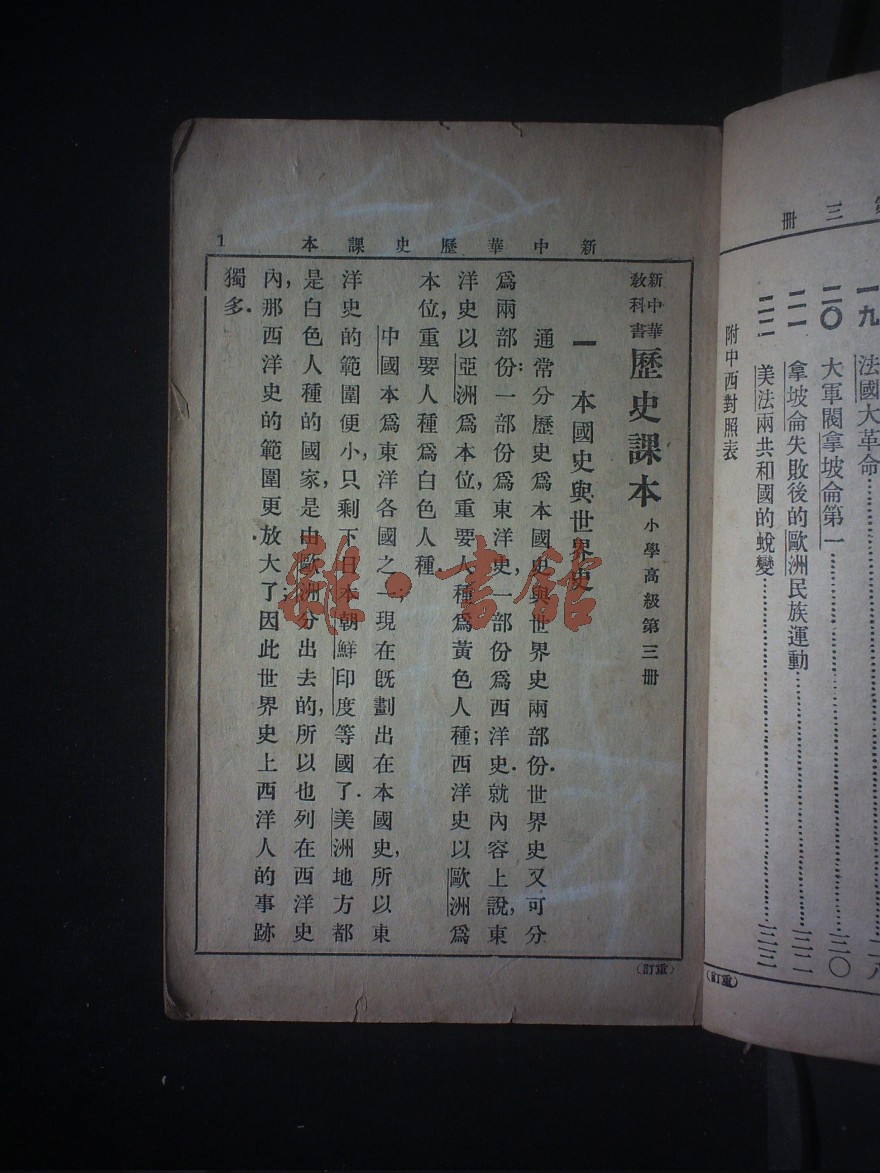 第三冊
一九 法國大革命……二八
二〇 大軍閥拿坡侖第一……三〇
二一 拿坡侖失敗後的歐洲民族運動……三二
二二 美法兩共和國的蛻變……三三
附中西對照表
(重訂)
新中華歷史課本 1
新中華教科書 歷史課本 小學高級第三冊
一 本國史與世界史
通常分歷史爲本國史與世界史兩部份.世界史又可分
爲兩部份:一部份爲東洋史,一部份爲西洋史.就內容上說,東
洋史以亞洲爲本位,重要人種爲黃色人種;西洋史以歐洲爲
本位,重要人種爲白色人種
中國本爲東洋各國之一;現在旣劃出在本國史,所以東
洋史的範圍便小,只剩下日本朝鮮印度等國了.美洲地方都
是白色人種的國家,是由歐洲分出去的,所以也列在西洋史
內,那西洋史的範圍更放大了;因此世界史上西洋人的事跡
獨多.
(重訂)
雜·書館